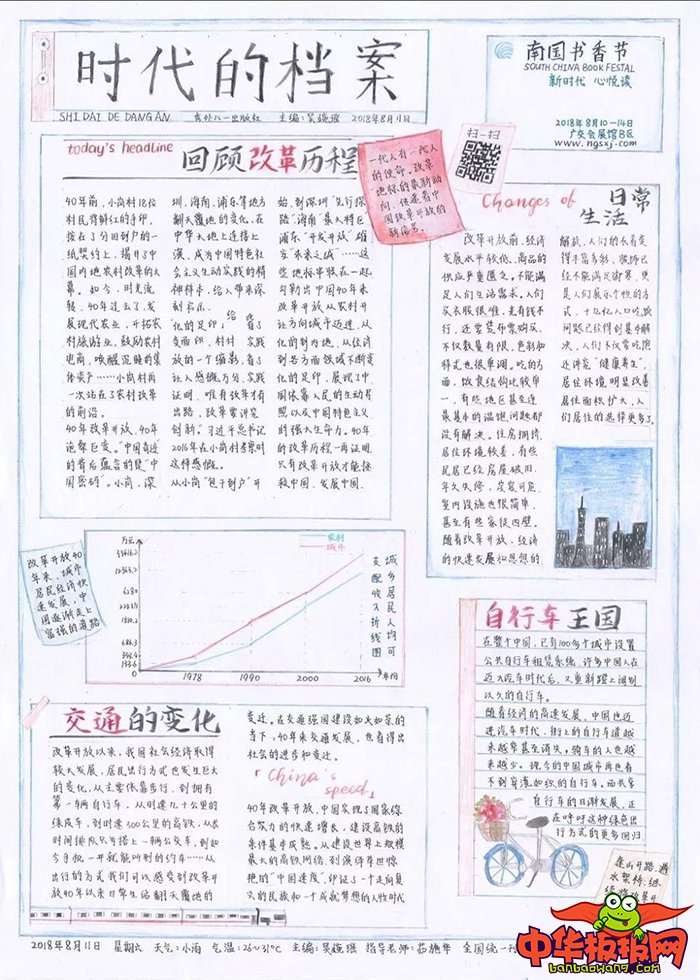 时代的档案
SHI DAI DE DANG AN
主编:吴婉瑶 2018年8月11日
南国书香节
SOUTH CHINA BOOK FESTAL
新时代 心悦读
2018年8月10-14日
广交会展馆B区
www.ngsxj.com
扫一扫
today's headline
回顾改革历程
一代人有一代人
的使命。改革
地标的最新动
向,但是看中
国改革开放的
40年前,小岗村18位
村民将鲜红的手印,
按在了分田到户的一
纸契约上,揭开了中
国内地农村改革的大
幕。如今,时光流
转,40年过去了,发
展现代农业,开拓农
村旅游业,鼓励农村
电商,唤醒沉睡的集
体资产……小岗村再
一次站在了农村改革
的前沿。
40年改革开放,40年
沧桑巨变。“中国奇迹”
的背后蕴含的是“中
国密码”。小岗、深
圳、海南、浦东等地方
翻天覆地的变化,在
中华大地上连接上
演,成为中国特色社
会主义生动实践的精
神样本,给人带来深
刻启示。
化的足印,
放的一个缩影,看了
让人感慨万分,实践
证明,唯有改革才有
出路,改革要讲究
创新。”习近平总书记
2016年在小岗村考察时
这样感慨。
从小岗“包干到户”开
始,到深圳“先行探
路”海南“最大特区”
浦东“开发开放”雄
安“未来之城”……这
些地标串联在一起,
勾勒出中国40年来
改革开放从农村开
让方向城市迈进、从
化的到内地、从经济
到各方面领域不断变
化的足印,展现了中
国依靠人民的生动写
照以及中国特色主义
的强大生命力。40年
的改革历程一再证明,
只有改革开放才能拯
救中国、发展中国、
Changes of 日常
生活
改革开放前,经济
发展水平较低,商品的
供应严重匮乏。不能满
足人们生活需求。人们
买衣服很难,光有钱不
行,还需凭布票购买。不
仅数量有限,色彩和
样式也很单调。吃的方
面,饮食结构比较单
一,有些地区甚至连
最基本的温饱问题都
没有解决。住房拥挤,
居住环境较差,有些
民居已经房屋破旧,
年久失修,
室内设施也很简单,
甚至有些家徒四壁。
随着改革开放,经济
的快速发展和思想的
解放,人们的衣着变
得丰富多彩,服饰已
经不能满足御寒,更
是人们展示个性的方
式,十几亿人口吃饭
问题已经得到基本解
决,人们不仅常吃饱
还讲究“健康养生”,
居住环境明显改善
居住面积扩大,人
们居住的选择更多了。
改革开放40
年来,城市
居民经济快
速发展,中
国逐渐走上
富强的道路
万元
农村
城市
33616.2
12363.7
6280
686.3
343.4
133.6
0
1978
1990
2000
2016
年份
城乡居民人均可
支配收入折线图
自行车王国
在整个中国,已有100多个城市设置
公共自行车租赁系统,许多中国人在
迈入汽车时代后,又重新蹬上阔别
以久的自行车。
随着经济的高速发展,中国也迈
进汽车时代,街上的自行车道越
来越窄甚至消失,骑车的人也越
来越少。现今的中国城市再也看
不到穿流如织的自行车。而共享
自行车的日渐发展,正
在呼吁这种绿色出
行方式的更多回归
逢山开路,遇
水架桥,继
交通的变化
改革开放以来,我国社会经济取得
较大发展,居民出行方式也发生巨大
的变化,从主要依靠步行,到拥有
第一辆自行车,从时速几十公里的
绿皮车,到时速300公里的高铁,从长
时间排队只为搭上一辆公交车,到如
今手机一开就能听到的约车……从
出行的方式我们可以感受到改革开
放40年以来日常生活翻天覆地的
变迁。在交通强国建设如火如荼的
当下,40年来交通发展,也看得出
社会的进步和变迁。
「China's
speed」
40年改革开放,中国实现了国家综
合实力的快速增长,建设高铁的
条件基本成熟。从建设世界上规模
最大的高铁网络,到演绎举世惊
艳的“中国速度”,印证了一个走向复
兴的民族和一个成就梦想的人性时代
2018年8月11日 星期六 天气:小雨 气温:26~31℃ 主编:吴婉瑶 指导老师:
中华板报网
banbaowang.com